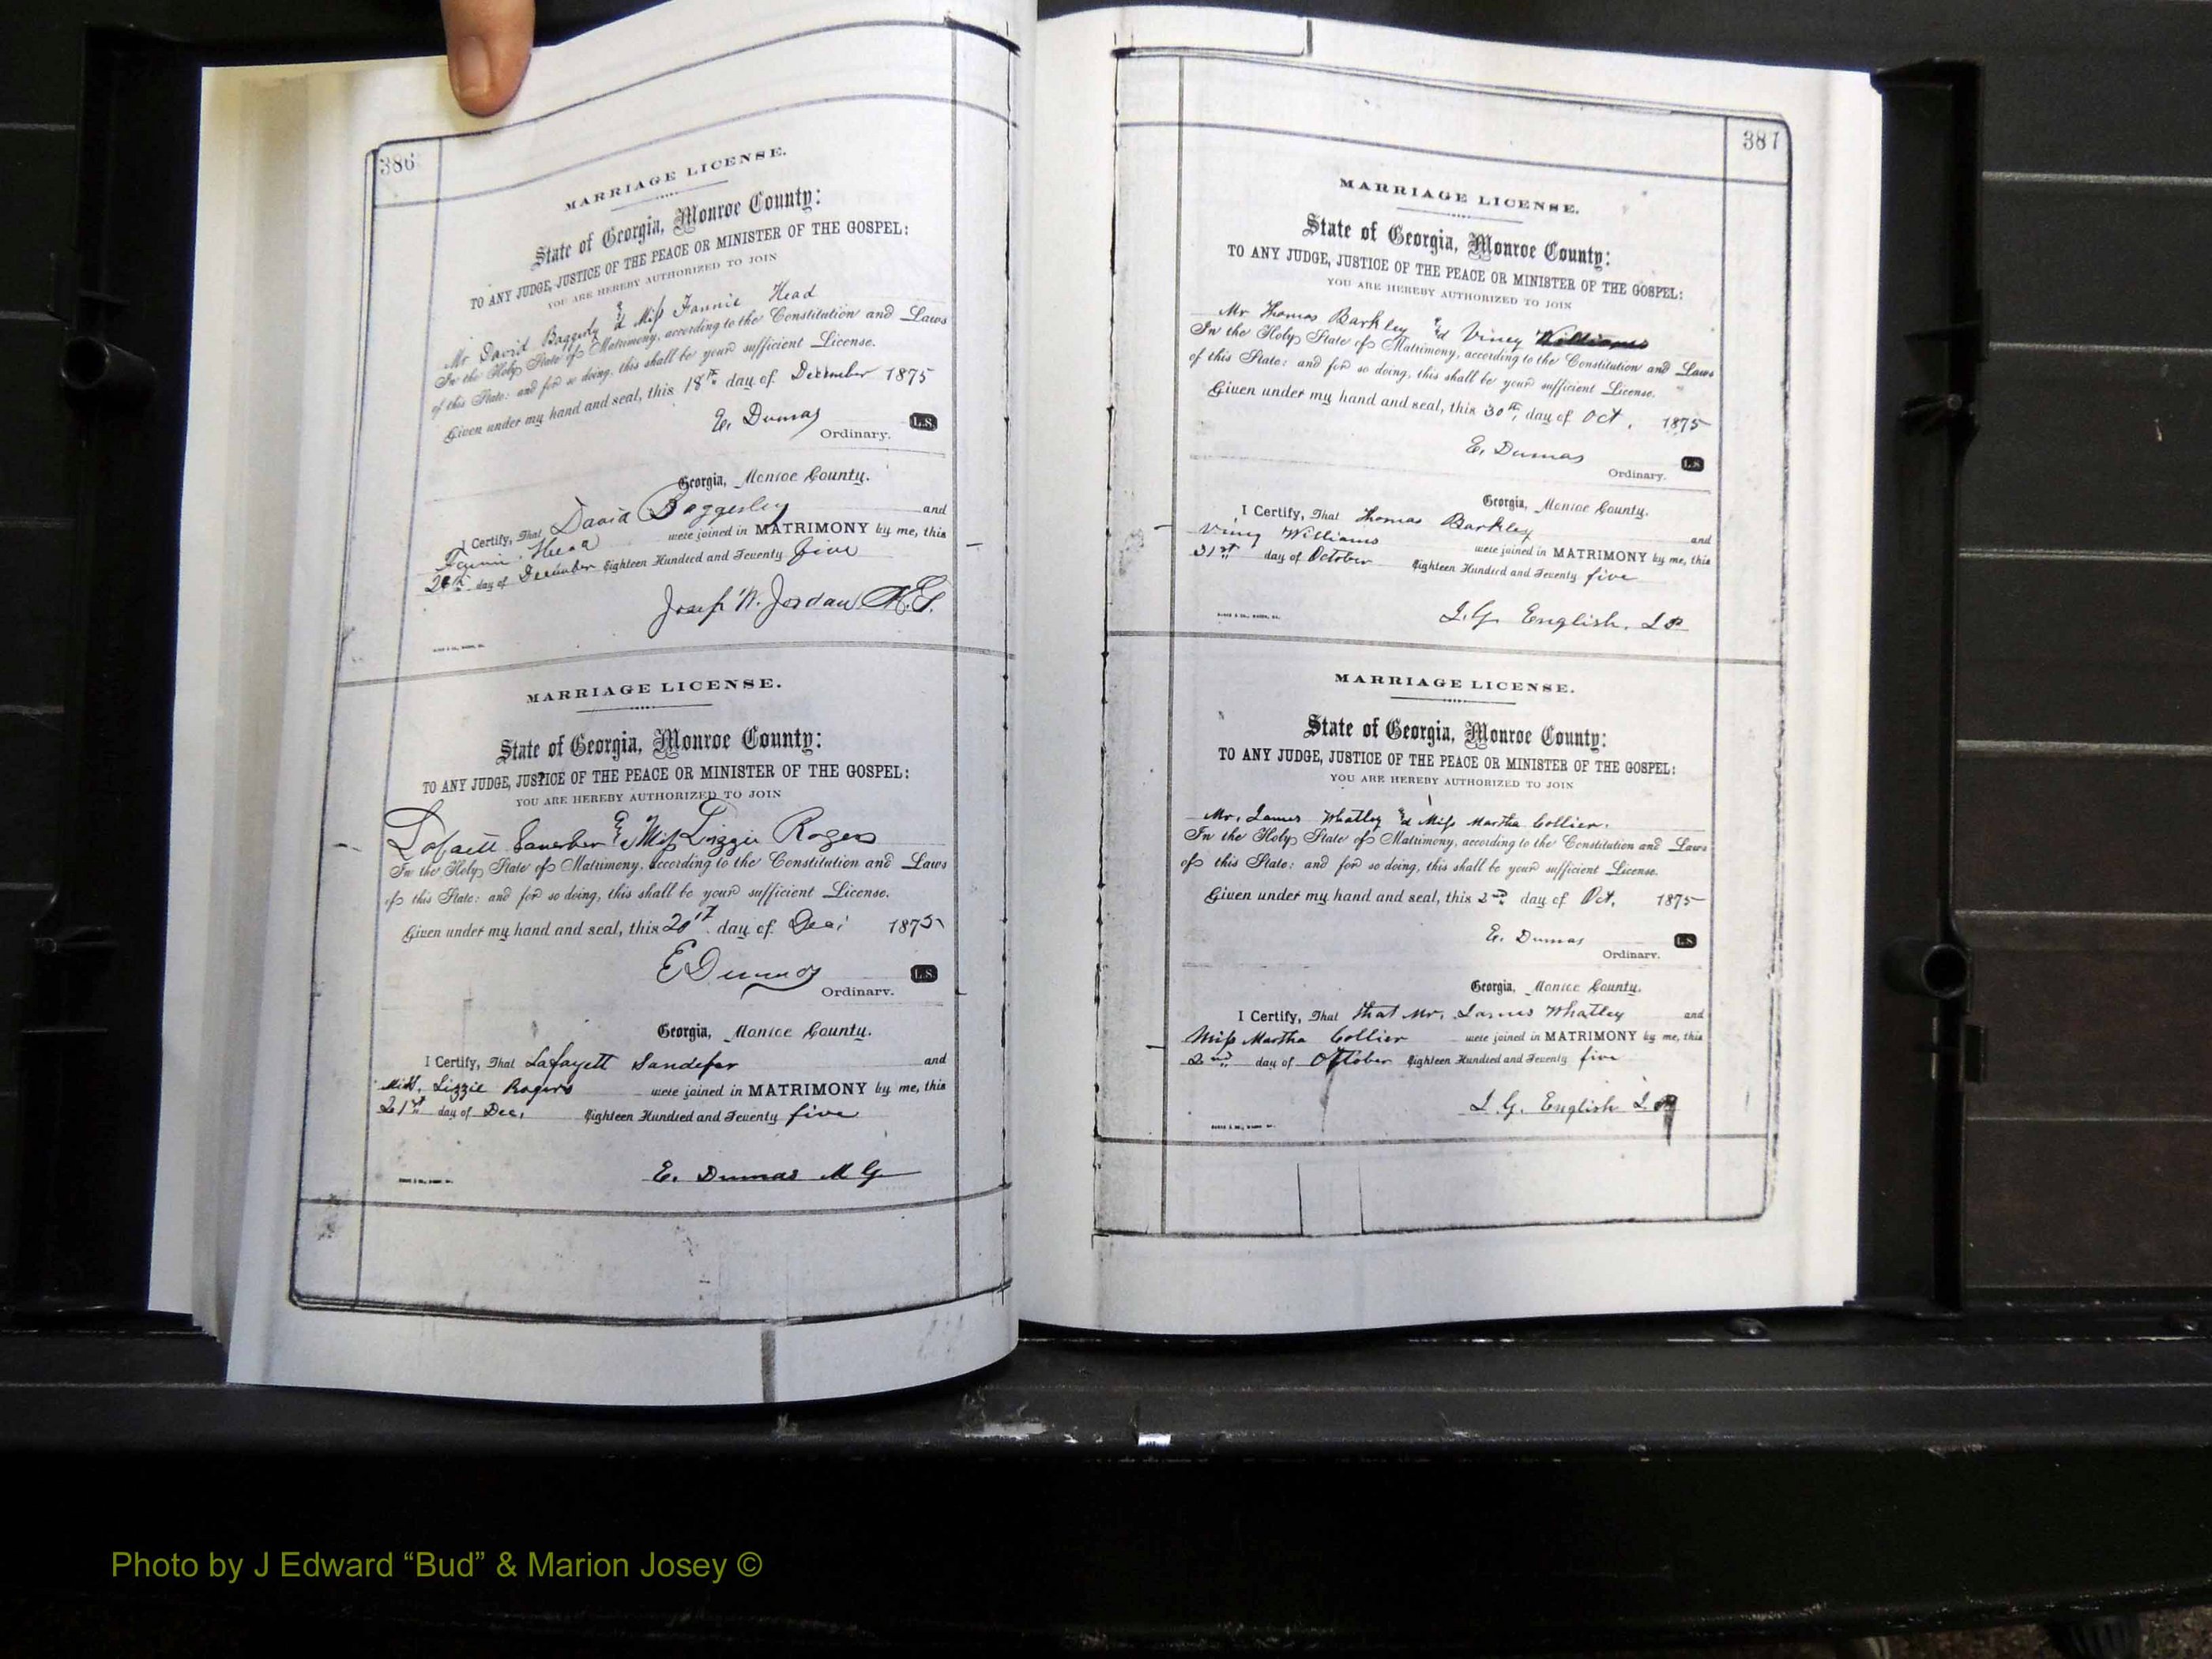 386
MARRIAGE LICENSE.
State of Georgia, Monroe County:
TO ANY JUDGE, JUSTICE OF THE PEACE OR MINISTER OF THE GOSPEL:
YOU ARE HEREBY AUTHORIZED TO JOIN
Mr David Baggerly & Miss Fannie Head
In the Holy State of Matrimony, according to the Constitution and Laws
of this State: and for so doing, this shall be your sufficient License.
Given under my hand and seal, this 18th day of December 1875
E. Dumas L.S.
Ordinary.
Georgia, Monroe County.
I Certify, That David Baggerley and
Fannie Head were joined in MATRIMONY by me, this
day of December Eighteen Hundred and Seventy five
W. Jordan
MARRIAGE LICENSE.
State of Georgia, Monroe County:
TO ANY JUDGE, JUSTICE OF THE PEACE OR MINISTER OF THE GOSPEL:
YOU ARE HEREBY AUTHORIZED TO JOIN
Lafaett & Miss Lizzie Rogers
In the Holy State of Matrimony, according to the Constitution and Laws
of this State: and for so doing, this shall be your sufficient License.
Given under my hand and seal, this day of Dec. 1875
E Dumas L.S.
Ordinary.
Georgia, Monroe County.
I Certify, That Lafayett Sandefer and
Miss. Lizzie Rogers were joined in MATRIMONY by me, this
21st day of Dec, Eighteen Hundred and Seventy five
E. Dumas M G
387
MARRIAGE LICENSE.
State of Georgia, Monroe County:
TO ANY JUDGE, JUSTICE OF THE PEACE OR MINISTER OF THE GOSPEL:
YOU ARE HEREBY AUTHORIZED TO JOIN
Mr Thomas Barkley & Viney Williams
In the Holy State of Matrimony, according to the Constitution and Laws
of this State: and for so doing, this shall be your sufficient License.
Given under my hand and seal, this 30th day of Oct. 1875
E. Dumas L.S
Ordinary.
Georgia, Monroe County.
I Certify, That Thomas Barkley and
Viney Williams were joined in MATRIMONY by me, this
31st day of October Eighteen Hundred and Seventy five
English.
MARRIAGE LICENSE.
State of Georgia, Monroe County:
TO ANY JUDGE, JUSTICE OF THE PEACE OR MINISTER OF THE GOSPEL:
YOU ARE HEREBY AUTHORIZED TO JOIN
Mr. James Whatley & Miss Martha Collier.
In the Holy State of Matrimony, according to the Constitution and Laws
of this State: and for so doing, this shall be your sufficient License.
Given under my hand and seal, this 2nd day of Oct. 1875
E. Dumas L.S
Ordinary.
Georgia, Monroe County.
I Certify, That that Mr. James Whatley and
Miss Martha Collier were joined in MATRIMONY by me, this
2nd day of October Eighteen Hundred and Seventy five
English
Photo by J Edward “Bud” & Marion Josey ©